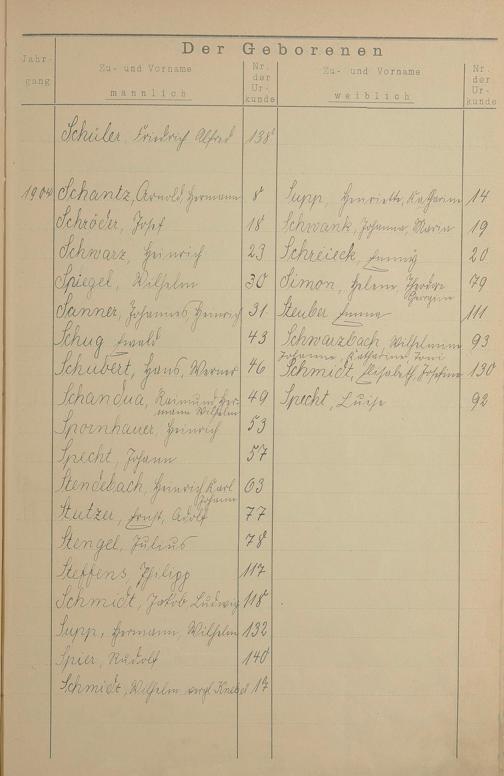 Der Geborenen
Jahr-
gang
Zu- und Vorname
männlich
Nr.
der
Ur-
kunde
Zu- und Vorname
weiblich
Nr.
der
Ur-
kunde
Schüler, Friedrich Alfred 138
1904 Schantz, Arnold Hermann 8
Schröder, Josef 18
Schwarz, Heinrich 23
Spiegel, Wilhelm 30
Sanner, Johannes Heinrich 31
Schug Ewald 43
Schubert, Hans, Werner 46
Schandua, Raimund Her-
mann Wilhelm 49
Spornhauer, Heinrich 53
Specht, Johann 57
Stendebach, Heinrich Karl
Johann 63
Stutzer, Ernst, Adolf 77
Stengel, Julius 78
Steffens, Philipp 117
Schmidt, Jakob Ludwig 118
Supp, Hermann, Wilhelm 132
Spier, Rudolf 140
Schmidt, Wilhelm vergl. 17
Supp, Henriette, Katharine 14
Schwank, Johanna, Maria 19
Schreieck, Emmy 20
Simon, Helene, Theodore
Georgine 79
Steuber Emma 111
Schwarzbach, Wilhelmine 93
Johanna, Katharine Toni
Schmidt, Elisabeth, Josefine 130
Specht, Luise 92